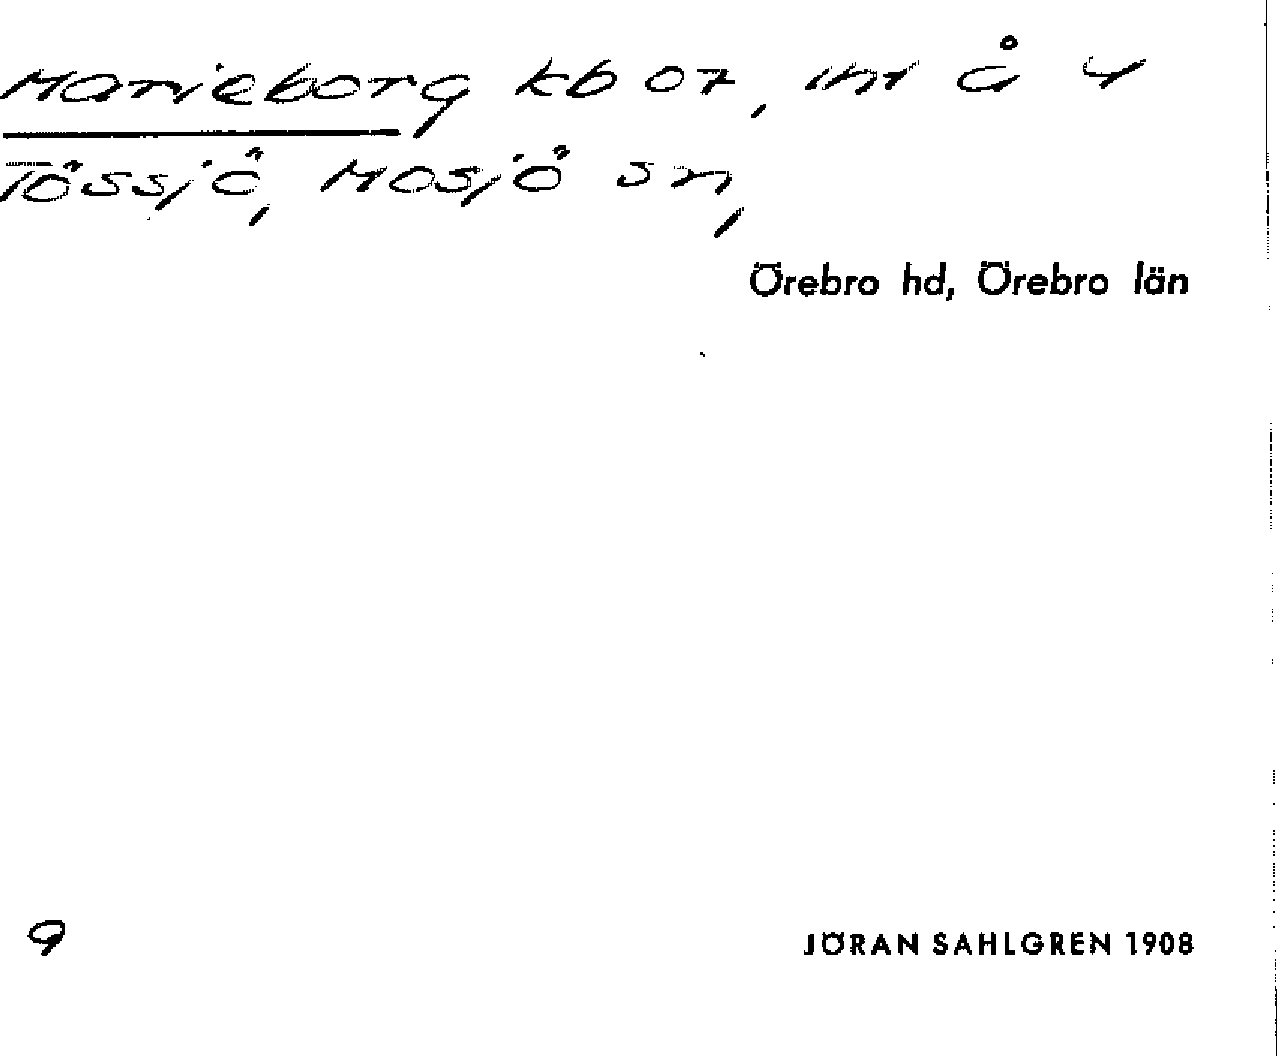 Marieborg kb 07, iht å 4
Tössjö, Mosjö sn,
Örebro hd, Örebro län
9
JÖRAN SAHLGREN 1908